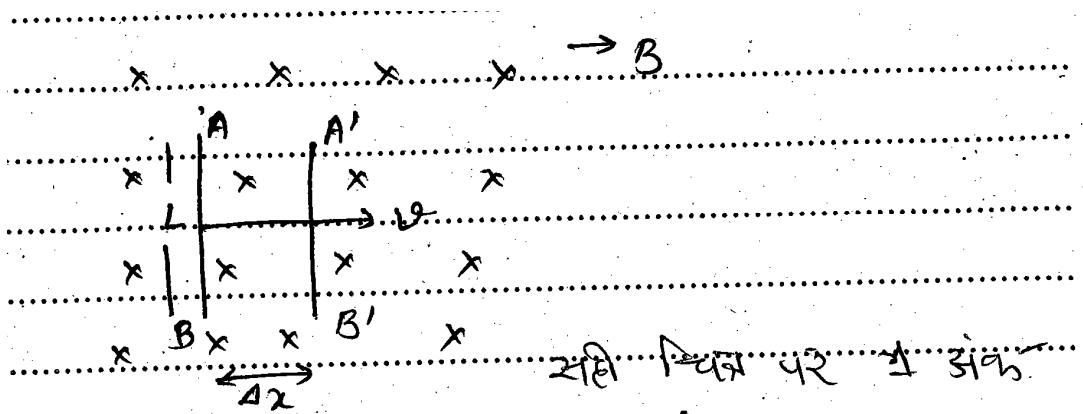 × × × × → B
A A'
× × × ×
L v
× × × ×
B B'
× × × ×
Δx
सही चित्र पर 1 अंक